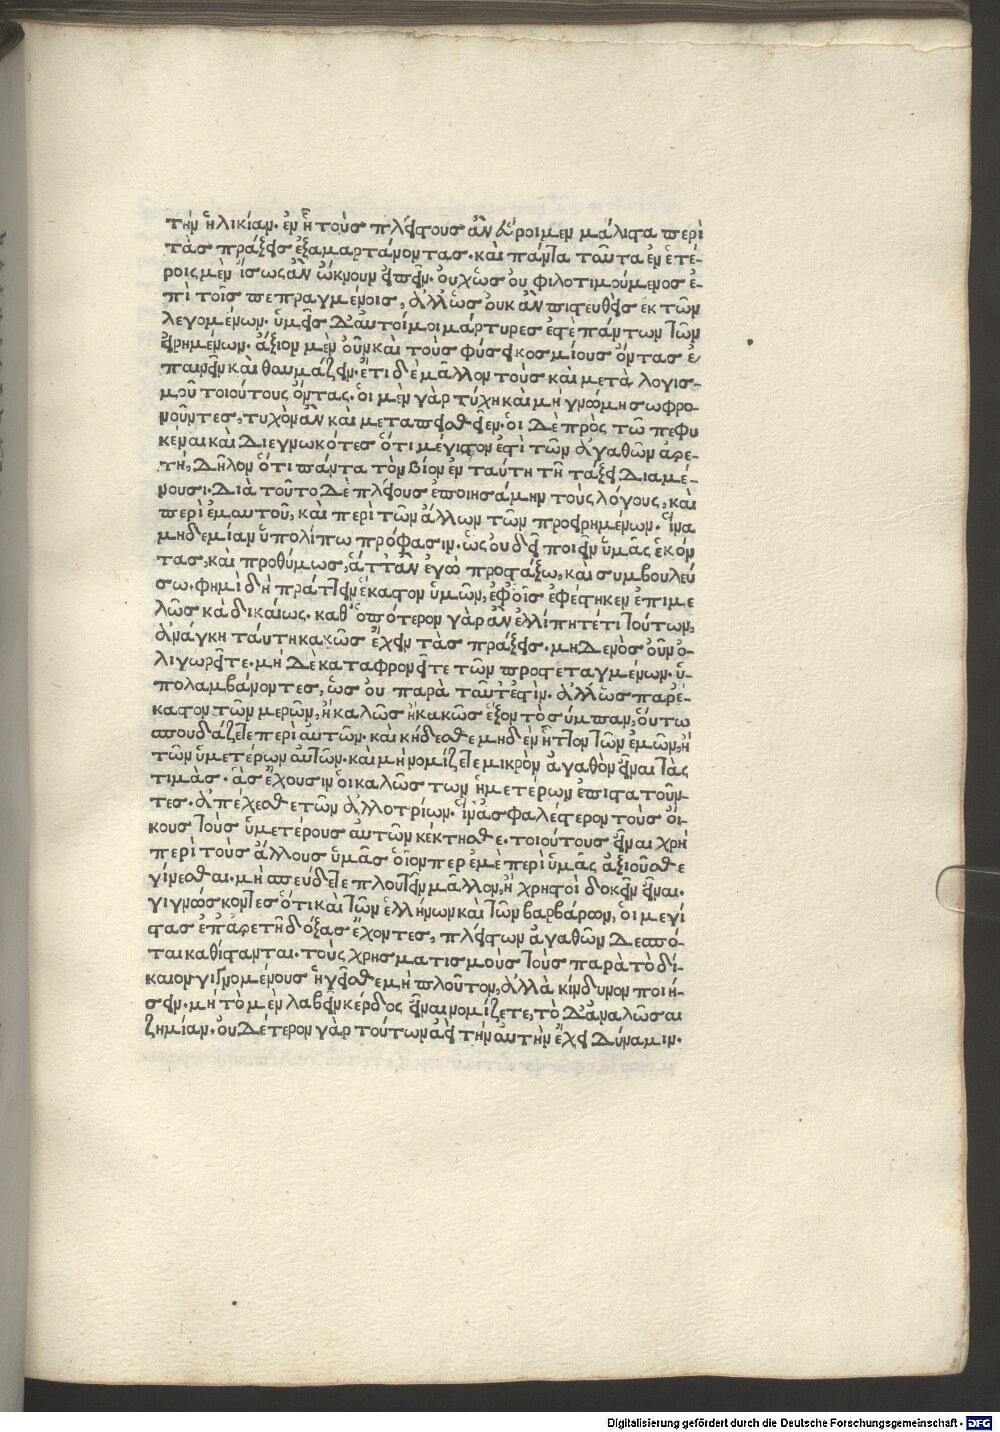 τὴν ἡλικίαν. ἐν ᾗ τοὺς πλείστους ἂν εὕροιμεν μάλιστα περὶ
τὰς πράξεις ἐξαμαρτάνοντας. καὶ πάντα ταῦτα ἐν ἑτέ-
ροις μὲν ἴσως ἂν ὤκνουν εἰπεῖν. οὐχ ὡς οὐ φιλοτιμούμενος ἐ-
πὶ τοῖς πεπραγμένοις, ἀλλ' ὡς οὐκ ἂν πιστευθεὶς ἐκ τῶν
λεγομένων. ὑμεῖς δ' αὐτοί μοι μάρτυρες ἐστὲ πάντων τῶν
εἰρημένων. ἄξιον μὲν οὖν καὶ τοὺς φύσει κοσμίους ὄντας ἐ-
παινεῖν καὶ θαυμάζειν. ἔτι δὲ μαλλον τοὺς καὶ μετὰ λογισ-
μοῦ τοιούτους ὄντας. οἱ μὲν γὰρ τύχη καὶ μὴ γνώμη σωφρο-
νοῦντες, τυχὸν ἂν καὶ μεταπεισθεῖεν. οἱ δὲ πρὸς τῶ πεφυ
κέναι καὶ διεγνωκότες ὅτι μέγιστον ἐστὶ τῶν ἀγαθῶν ἀρε-
τή, δῆλον ὅτι πάντα τὸν βίον ἐν ταύτη τῆ τάξει διαμέ-
νουσι. διὰ τοῦτο δὲ πλείους ἐποιησάμην τοὺς λόγους, καὶ
περὶ ἐμαυτοῦ, καὶ περὶ τῶν ἄλλων τῶν προειρημενων. ἵνα
μηδεμίαν ὑπολίπω πρόφασιν. ὡς οὐ δεῖ ποιεῖν ὑμᾶς ἑκόν
τας, καὶ προθύμως, ἅττ' ἂν ἐγὼ προστάξω, καὶ συμβουλεύ
σω. φημὶ δὴ πράττειν ἕκαστον ὑμῶν, ἐφ' οἷς ἐφέστηκεν ἐπιμε
λῶς κα δικαίως. καθ' ὁπότερον γὰρ ἂν ἐλλίπητέ τι τούτων,
ἀνάγκη ταύτη κακῶς ἔχειν τὰς πράξεις. μηδενὸς οὖν ὀ-
λιγωρεῖτε. μὴ δὲ καταφρονεῖτε τῶν προστεταγμένων. ὑ-
πολαμβάνοντες, ὡς οὐ παρὰ τοῦτ' ἐστὶν. ἀλλ' ὡς παρ' ἕ-
καστον τῶν μερῶν, ἢ καλῶς ἢ κακῶς ἕξον τὸ σύμπαν, οὕτω
σπουδάζετε περὶ αὐτῶν. καὶ κήδεσθε μηδὲν ἧττον τῶν ἐμῶν, ἢ
τῶν ὑμετέρων αὐτῶν. καὶ μὴ νομίζετε μικρὸν ἀγαθὸν εἶναι τὰς
τιμάς. ἃς ἔχουσιν οἱ καλῶς των ἡμετέρων ἐπιστατοῦν-
τες. ἀπέχεσθε τῶν ἀλλοτρίων. ἵν' ἀσφαλέστερον τοὺς οἴ-
κους τοὺς ὑμετέρους αὐτῶν κέκτησθε. τοιούτους εἶναι χρὴ
περὶ τοὺς ἄλλους ὑμᾶς οἷον περ ἐμὲ περὶ ὑμᾶς ἀξιοῦσθε
γίνεσθαι. μὴ σπεύδετε πλουτεῖν μάλλον, ἢ χρηστοὶ δοκεῖν εἶναι.
γιγνώσκοντες ὅτι καὶ τῶν ἑλλήνων καὶ τῶν βαρβάρων, οἱ μεγί
στας ἐπ' ἀρετῆ δόξας ἔχοντες, πλείστων ἀγαθῶν δεσπό-
ται καθίστανται. τοὺς χρησματισμοὺς τοὺς παρὰ τὸ δί-
καιον γιγνομένους ἡγεῖσθε μὴ πλοῦτον, ἀλλὰ κίνδυνον ποιή-
σειν. μὴ τὸ μὲν λαβεῖν κέρδος εἶναι νομίζετε, τὸ δ' ἀναλῶσαι
ζημίαν. οὐδέτερον γὰρ τούτων ἀεὶ τὴν αὐτὴν ἔχει δύναμιν.
Digitalisierung gefördert durch die Deutsche Forschungsgemeinschaft - DFG